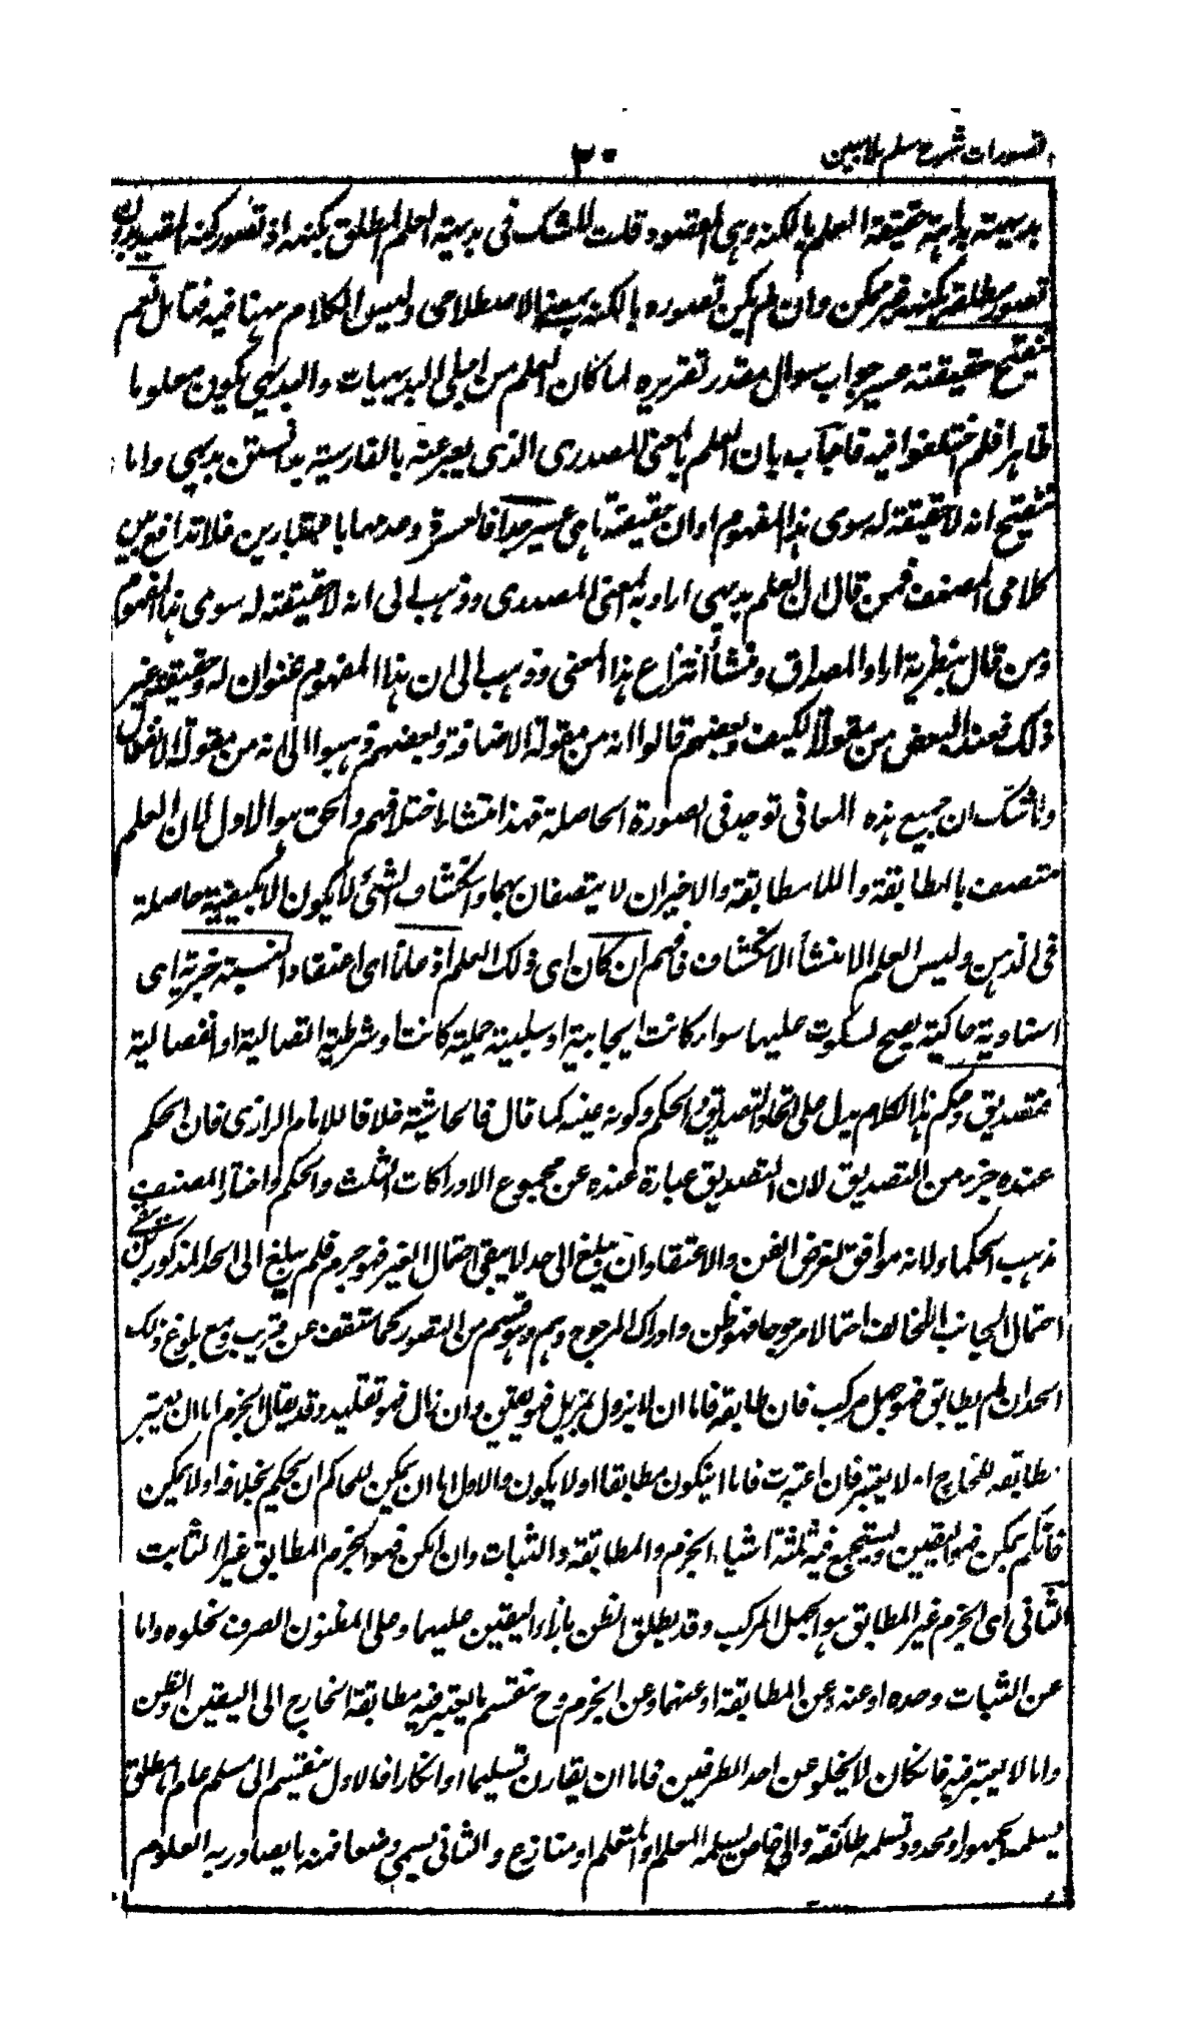 تصورات شرح سلم ملا مبين
٣٠
بديهية بداهة حقيقة العلم بالكنه وهى المقصود قلت للشك فى بديهية العلم المطلق بكنهه اذ تصور كنه المقيد بدون
تصور مطلقه بكنهه غير ممكن وان لم يكن تصوره بالكنه بمعناه الاصطلاحى وليس الكلام ههنا فيه فتامل نعم
تنقيح حقيقته عسير جواب سوال مقدر تقريره لما كان العلم من اجلى البديهيات والبديهى يكون معلوما
ظاهرا فلم اختلفوا فيه فاجاب بان العلم بالمعنى المصدرى الذى يعبر عنه بالفارسية بدانستن بديهى واما
تنقيح انه لا حقيقة له سوى هذا المفهوم او ان حقيقته ما هى عسير جدا فالعسر وعدمها باعتبارين فلا تدافع بين
كلامى المصنف فمن قال ان العلم بديهى اراد به المعنى المصدرى وذهب الى انه لا حقيقة له سوى هذا المفهوم
ومن قال بنظرية اراد المصداق ومنشأ انتزاع هذا المعنى وذهب الى ان هذا المفهوم عنوان له وحقيقته غير
ذلك فعند البعض من مقولة الكيف وبعضهم قالوا انه من مقولة الاضافة وبعضهم ذهبوا الى انه من مقولة الانفعال
ولا شك ان جميع هذه المعانى توجد فى الصورة الحاصلة فهذا منشاء اختلافهم والحق هو الاول لان العلم
متصف بالمطابقة واللامطابقة والاخيران لا يتصفان بهما وانكشاف الشئ لا يكون الا بكيفية حاصلة
فى الذهن وليس العلم الا منشأ الانكشاف فافهم ان كان اى ذلك العلم اذعانا اى اعتقادا لنسبة خبرية اى
اسنادية حاكية يصح السكوت عليها سواء كانت ايجابية او سلبية حملية كانت او شرطية اتصالية او انفصالية
فتصديق وحكم هذا الكلام يدل على اتحاد التصديق والحكم وكونه عينه كما قال فى الحاشية خلافا للامام الرازى فان الحكم
عنده جزء من التصديق لان التصديق عبارة عنده عن مجموع الادراكات الثلث والحكم واختار المصنف
مذهب الحكماء لانه موافق لغرض الفن والاعتقاد ان يبلغ الى حد لا يبقى احتمال الغير فهو جزم فلم يبلغ الى الحد المذكور بل يبقى
احتمال الجانب المخالف احتمالا مرجوحا فهو ظن وادراك المرجوح وهم وهو قسم من التصور كما ستقف عن قريب ومع بلوغ ذلك
الحد ان لم يطابق فهو جهل مركب فان طابقه فاما ان لا يزول بمزيل فهو يقين وان زال فهو تقليد وقد يقال الجزم اما ان يعتبر
مطابقته للخارج اولا يعتبر فان اعتبرت فاما ان يكون مطابقا او لا يكون والاول اما ان يمكن للحاكم ان يحكم بخلافه او لا يمكن
فان لم يمكن فهو اليقين ويستجمع فيه ثلثة اشياء الجزم والمطابقة والثبات وان امكن فهو الجزم المطابق غير الثابت
الثانى اى الجزم غير المطابق هو الجهل المركب وقد يطلق الظن بازاء اليقين عليهما وعلى المظنون الصرف لخلوه واما
عن الثبات وحده او عنه وعن المطابقة او عنهما وعن الجزم وح تنقسم ما يعتبر فيه مطابقة الخارج الى اليقين والظن
واما لا يعتبر فيه فانكان لا يخلو عن احد الطرفين فاما ان يقارن تسليما او انكارا فالاول ينقسم الى مسلم عام اما مطلق
يسلمه الجمهور او محدود تسلمه طائفة والى خاص يسلمه المعلم او المتعلم او منازع والثانى يسمى وضعا فمنه ما يصادر به العلوم